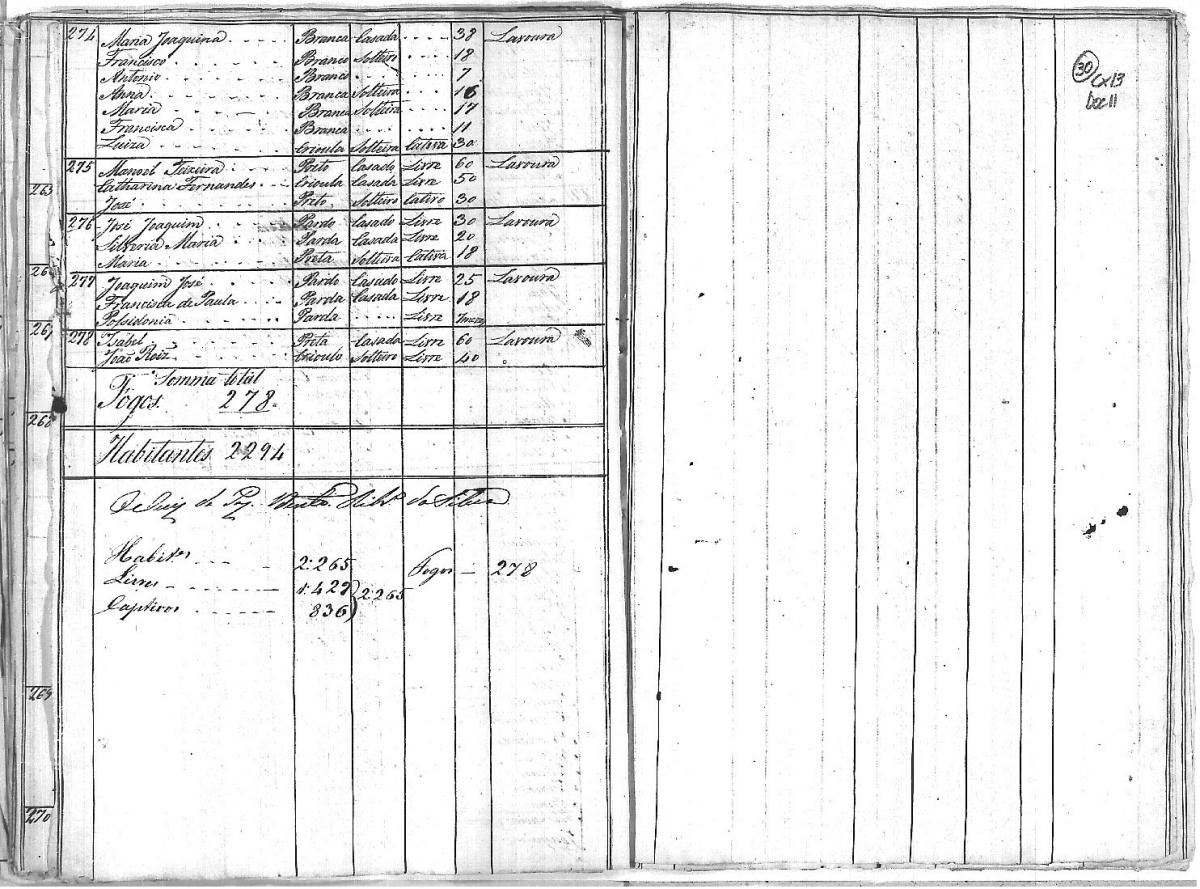 274 Maria Joaquina Branca Casada 38 Lavoura
Francisco Branco Solteiro 18
Antonio Branco 7
Anna Branca Solteira 16
Maria Branca Solteira 17
Francisca Branca 11
Luiza Crioula Solteira Cativa 30
275 Manoel Teixeira Preto Casado Livre 60 Lavoura
Catharina Fernandes Crioula Casada Livre 50
José Preto Solteiro Cativo 30
276 José Joaquim Pardo Casado Livre 30 Lavoura
Silveria Maria Parda Casada Livre 20
Maria Preta Solteira Cativa 18
277 Joaquim José Pardo Casado Livre 25 Lavoura
Francisca de Paula Parda Casada Livre 18
Possidonia Parda Livre
278 Isabel Preta Casada Livre 60 Lavoura
João Roiz Crioulo Solteiro Livre 40
Somma total
Fogos 278
Habitantes 2294
O Juiz de Pz. da Silva
Habit.es 2:265 Fogos — 278
Livres 1:429
Captivos 836 2:265
263
268
269
270
30
Cx13
Doc11